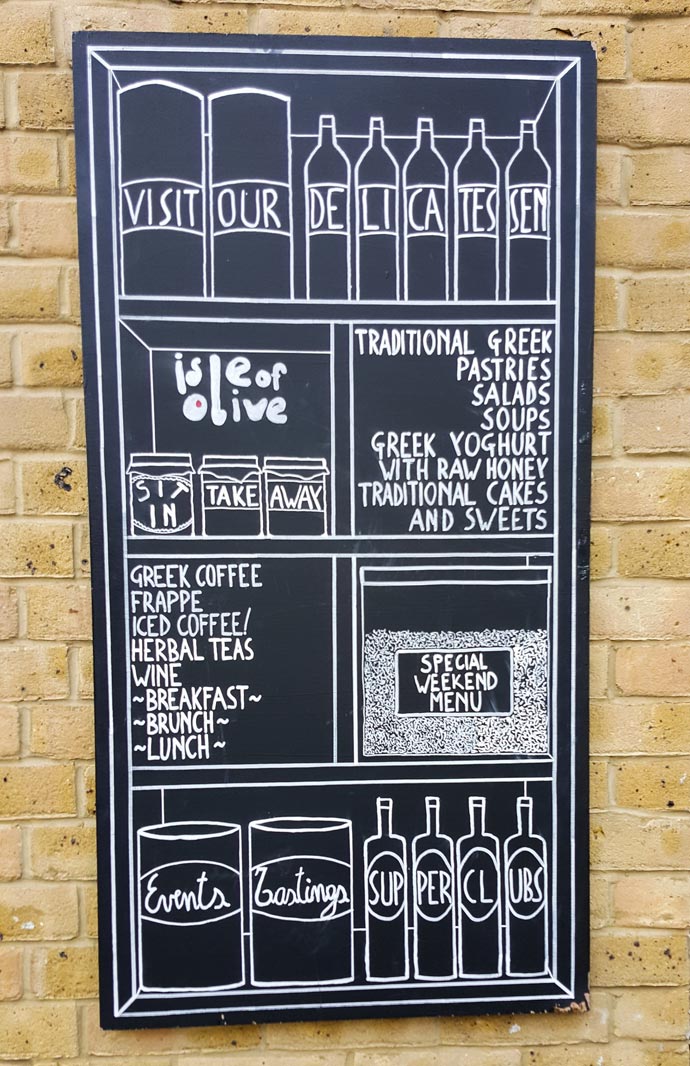 VISIT OUR DELICATESSEN
isle of
olive
SIT
IN
TAKE AWAY
TRADITIONAL GREEK
PASTRIES
SALADS
SOUPS
GREEK YOGHURT
WITH RAW HONEY
TRADITIONAL CAKES
AND SWEETS
GREEK COFFEE
FRAPPE
ICED COFFEE/
HERBAL TEAS
WINE
~BREAKFAST~
~BRUNCH~
~LUNCH~
SPECIAL
WEEKEND
MENU
Events Tastings SUPPER CLUBS